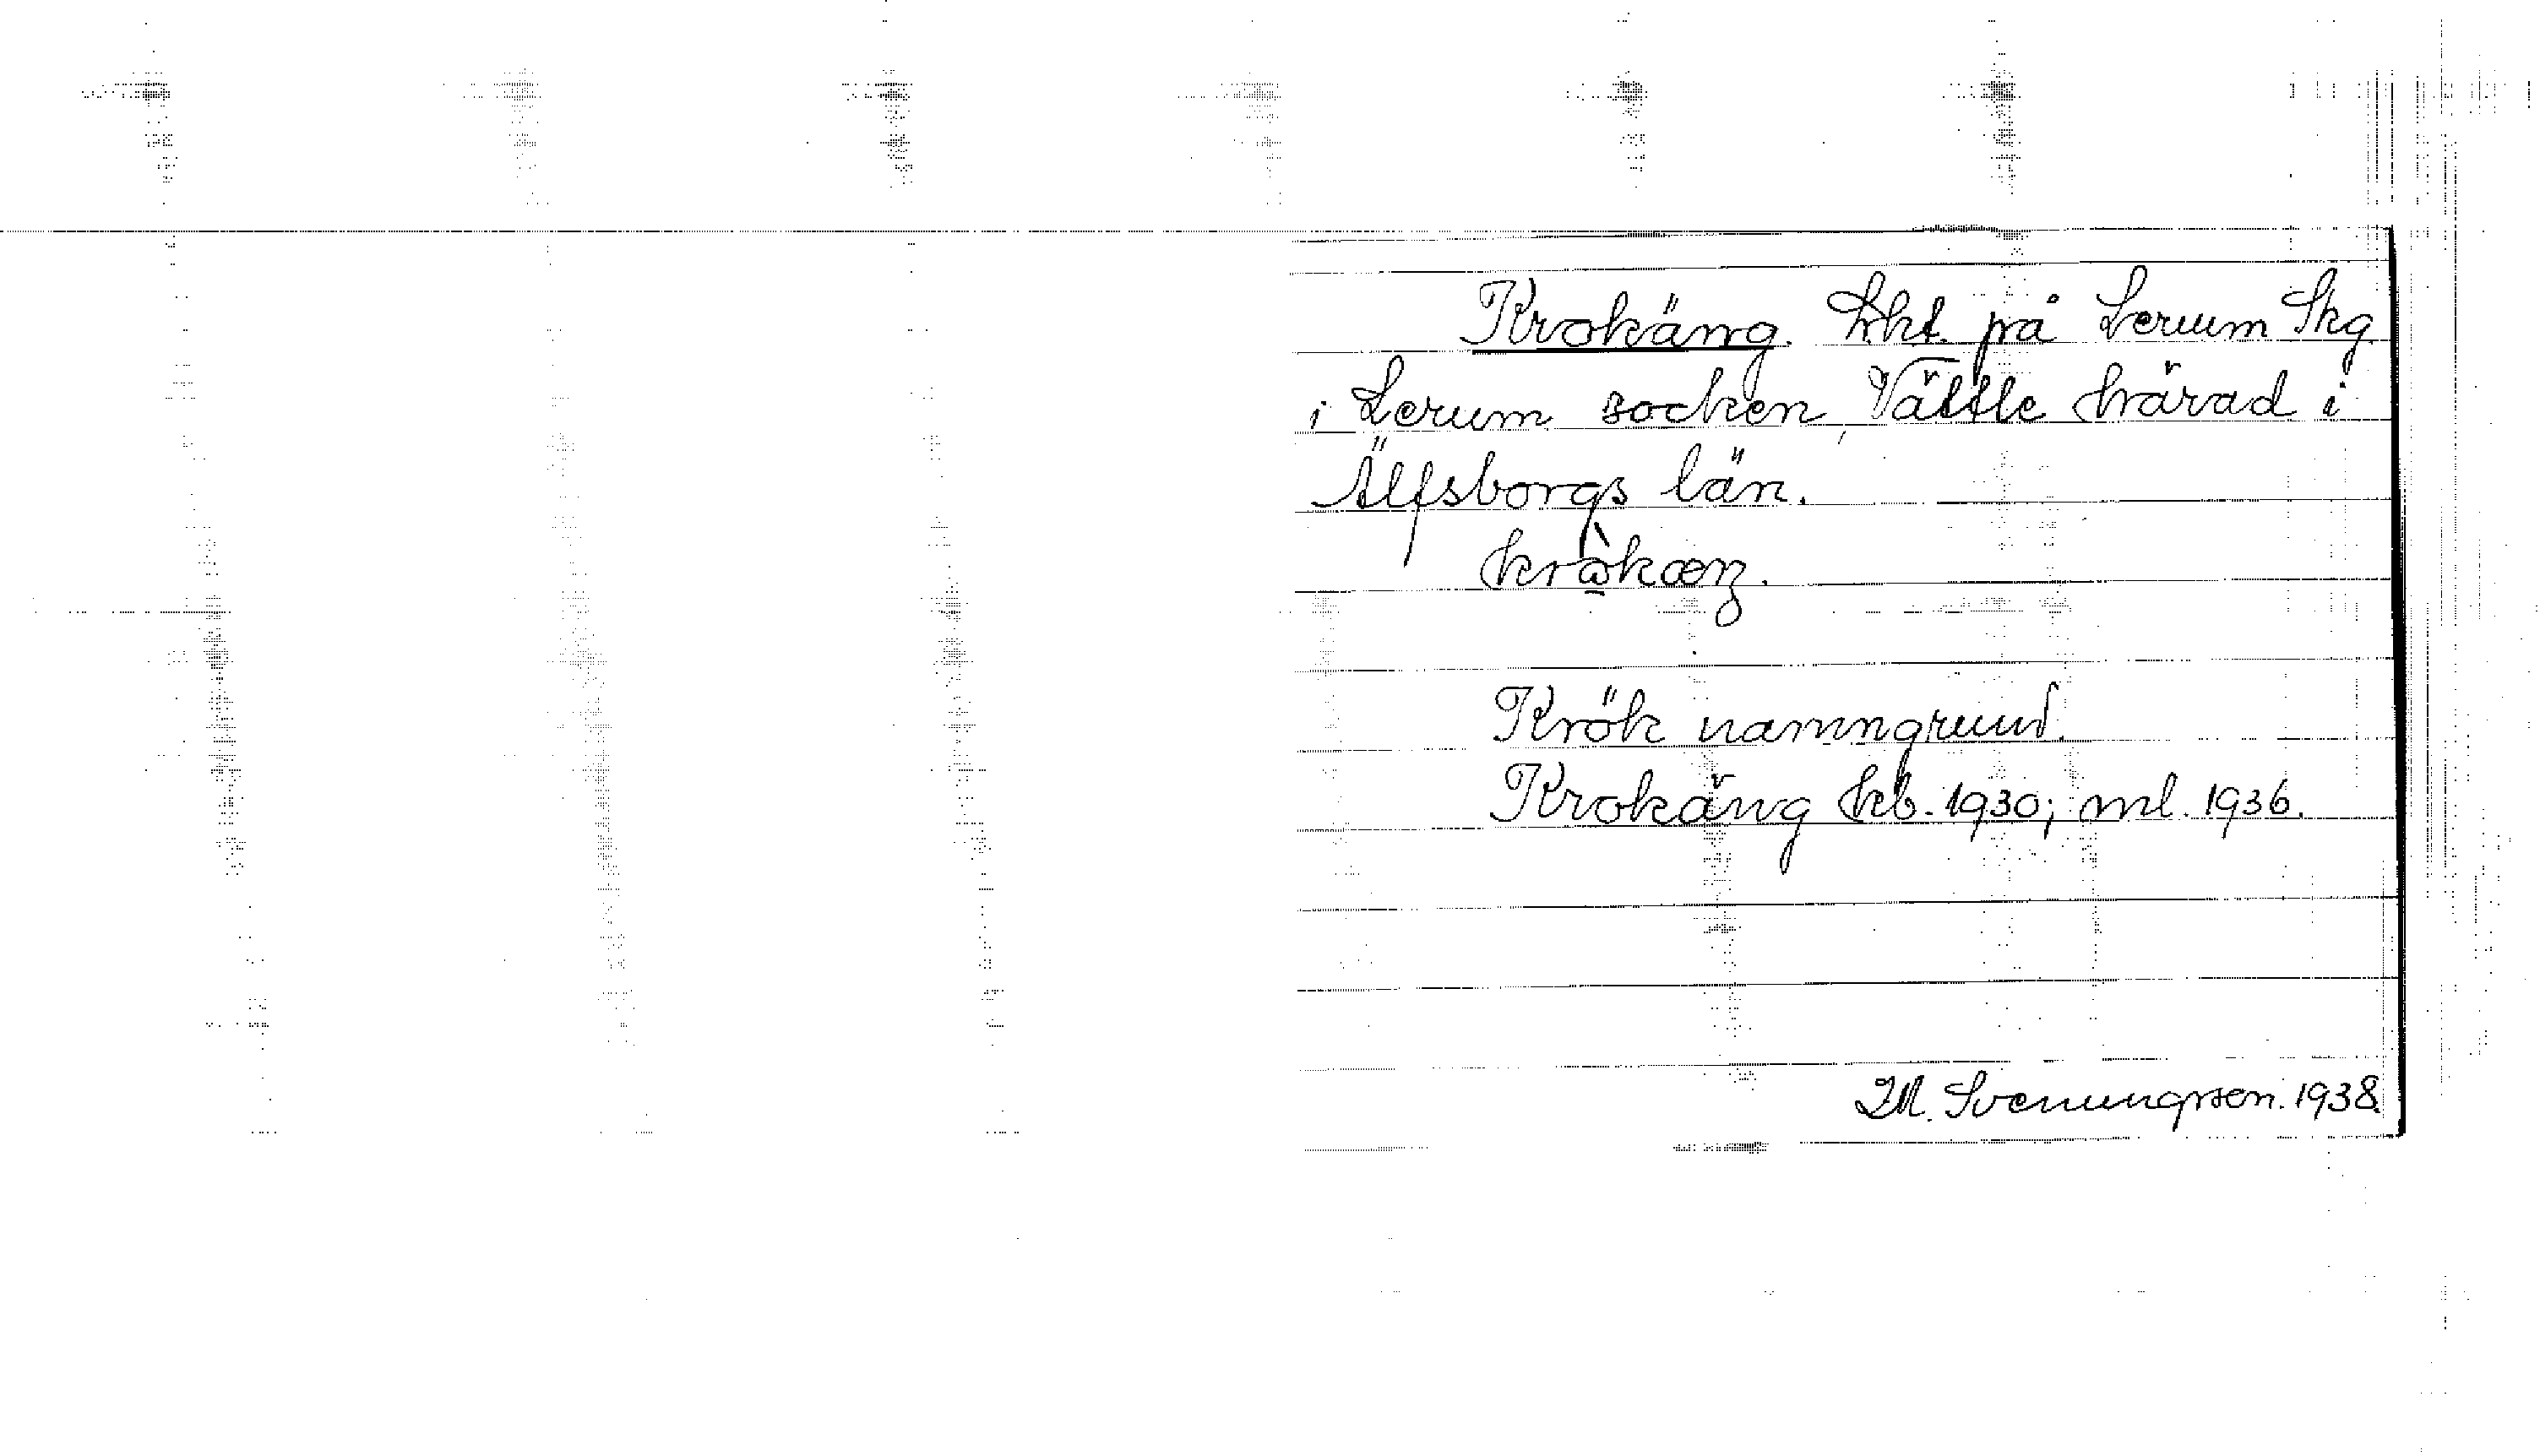 Krokäng. Lht. på Lerum Skg
i Lerum socken, Vättle härad i
Älfsborgs län.
Krök namngrund.
Krokäng kb. 1930; ml. 1936.
I M. Svenungsson. 1938.